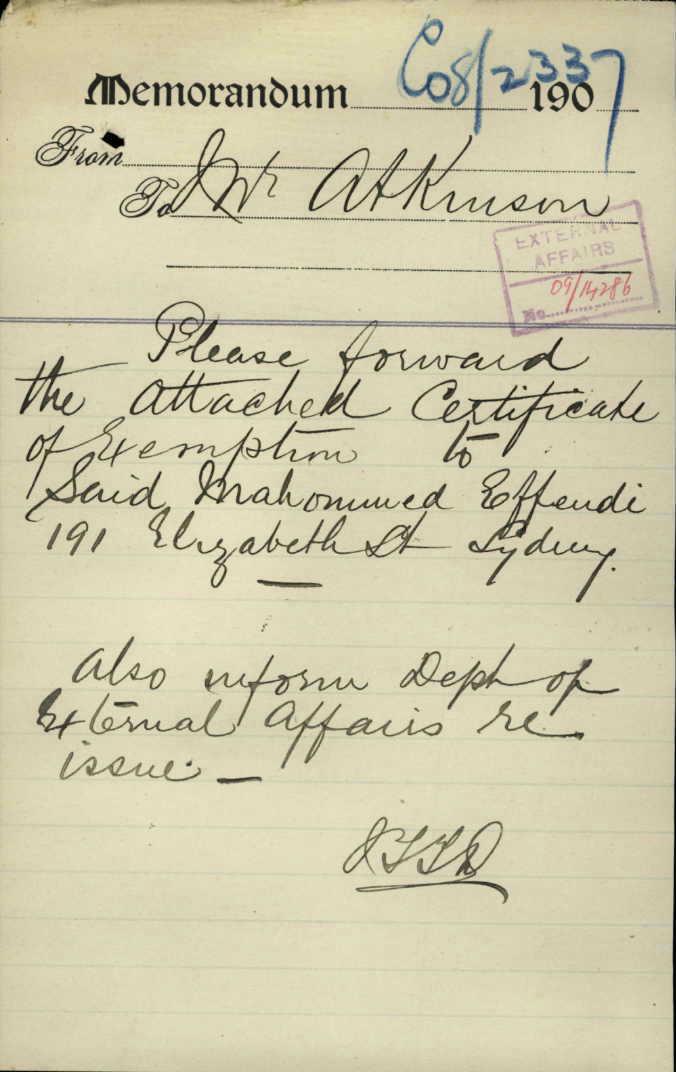 C08/2337
Memorandum 190
From
To Mr Atkinson
EXTERNAL
AFFAIRS
No. 09/14286
Please forward
the attached Certificate
of Exemption to
Said Mahommed Effendi
191 Elizabeth St Sydney.
Also inform Dept of
External Affairs re
issue. —